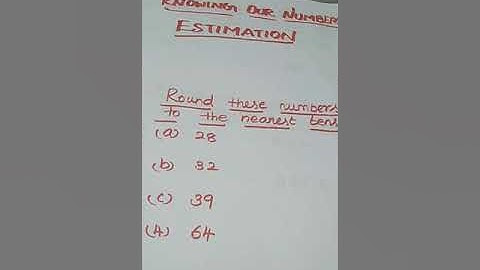 KNOWING OUR NUMBER
ESTIMATION
Round these numbers
to the nearest tens
(a) 28
(b) 32
(c) 39
(d) 64